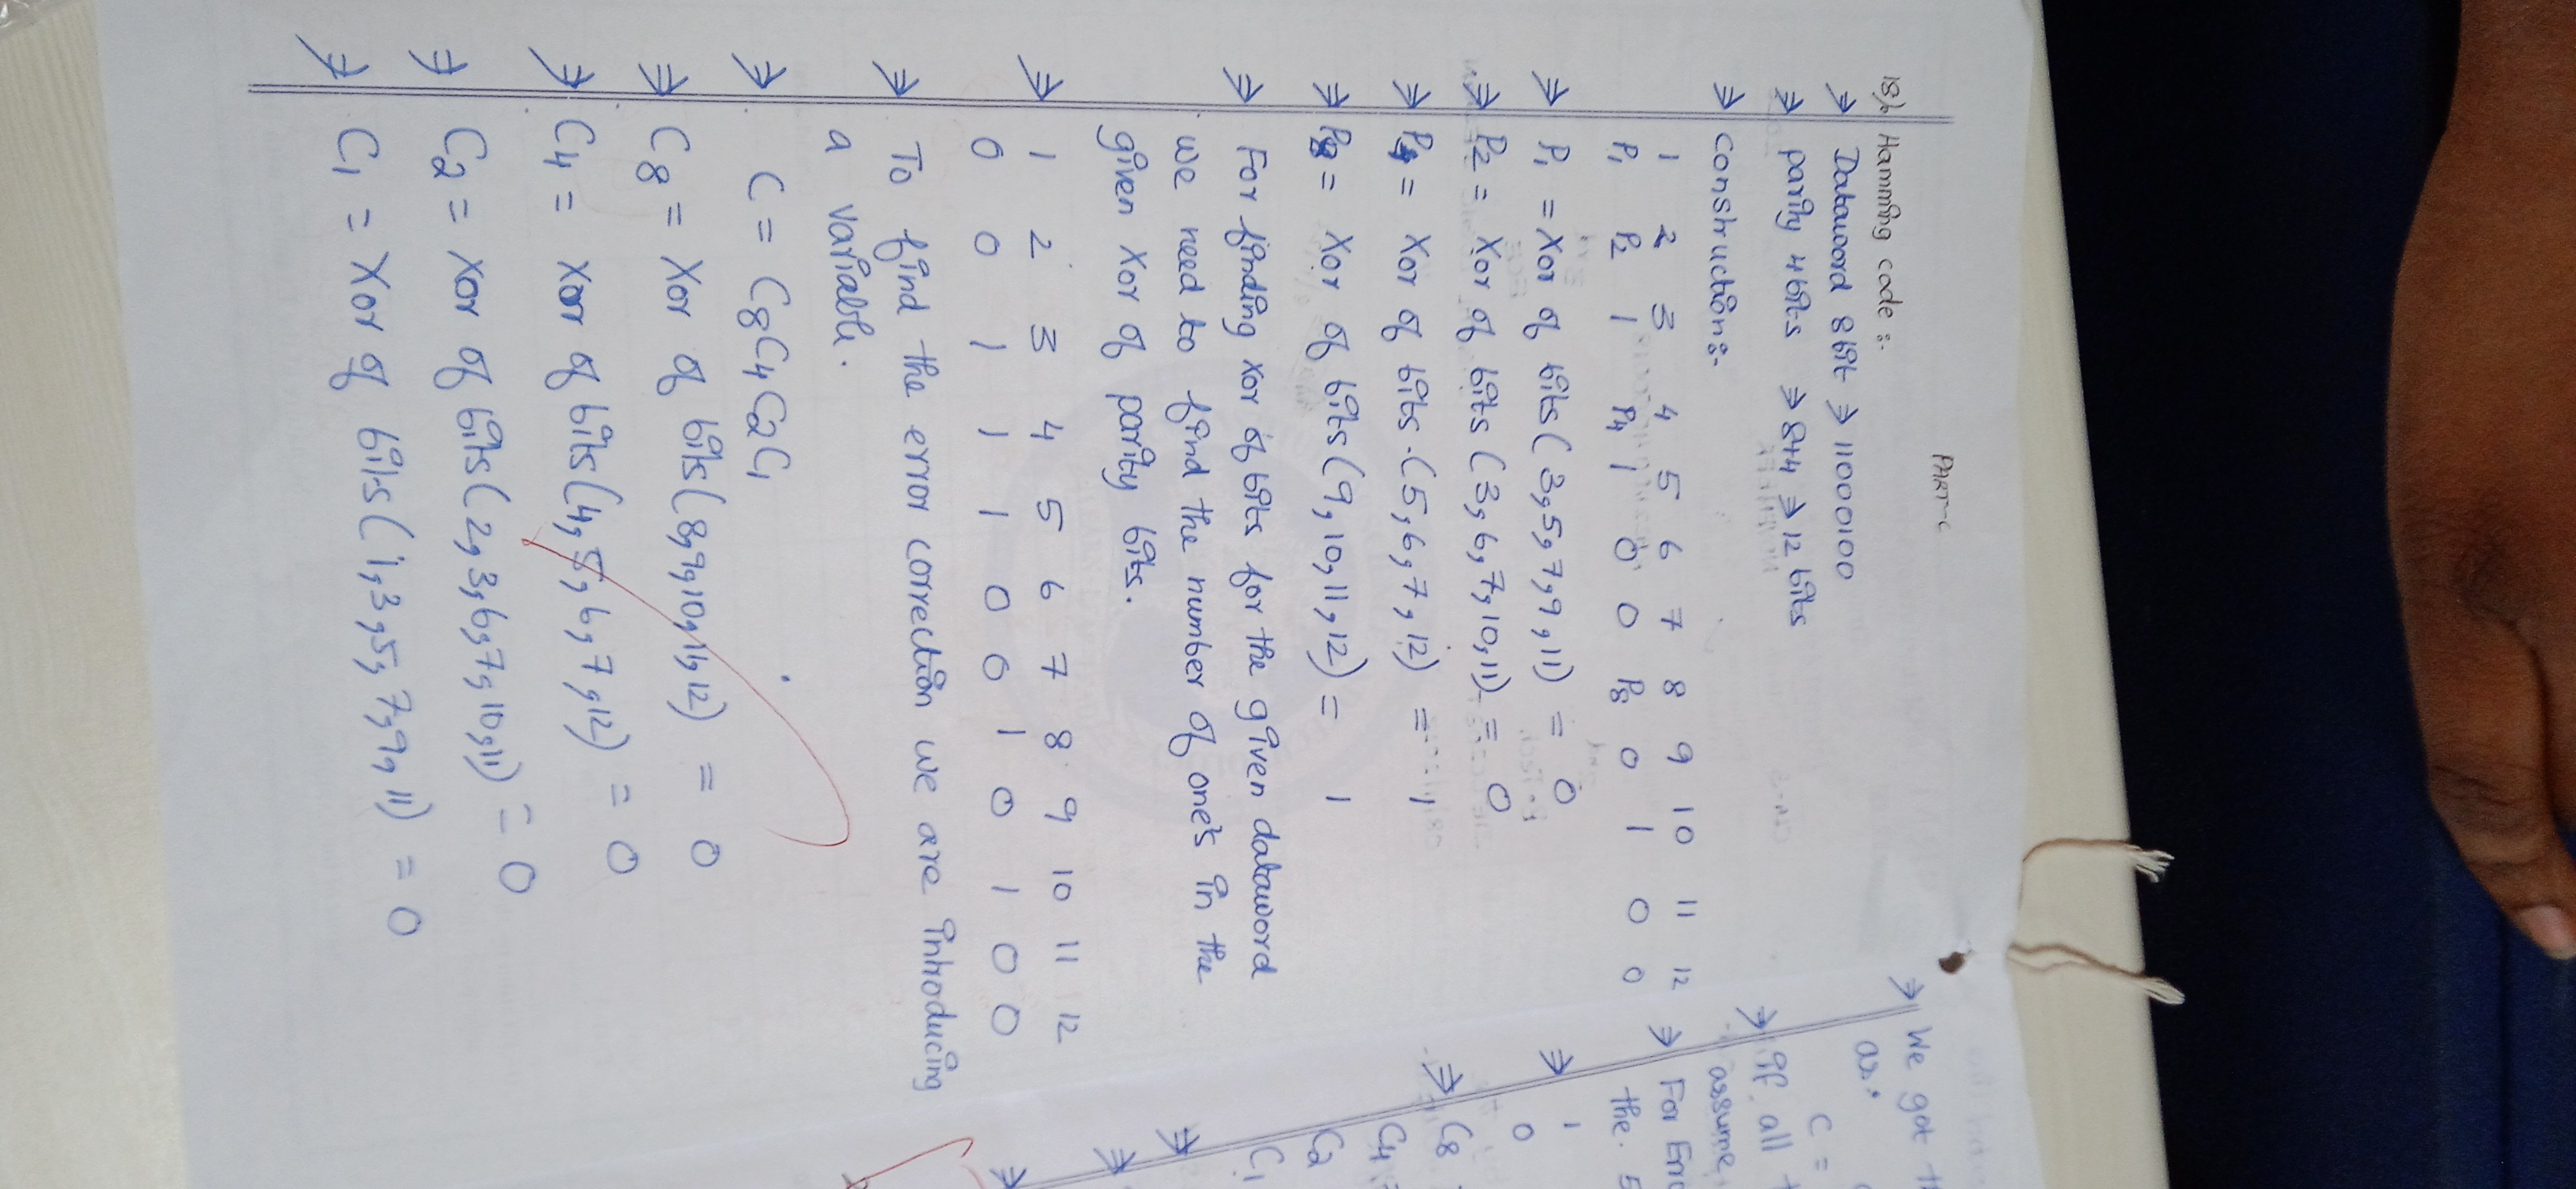 PART-C
18) Hamming code :-
⇒ Dataword 8 bit ⇒ 11000100
⇒ parity 4 bits ⇒ 8+4 ⇒ 12 bits
⇒ Construction:-
1 2 3 4 5 6 7 8 9 10 11 12
P1 P2 1 P4 1 0 0 P8 0 1 0 0
⇒ P1 = Xor of bits (3,5,7,9,11) = 0
⇒ P2 = Xor of bits (3,6,7,10,11) = 0
⇒ P4 = Xor of bits (5,6,7,12) = 1
⇒ P8 = Xor of bits (9,10,11,12) = 1
⇒ For finding xor of bits for the given dataword
we need to find the number of one's in the
given Xor of parity bits.
⇒ 1 2 3 4 5 6 7 8 9 10 11 12
0 0 1 1 1 0 0 1 0 1 0 0
⇒ To find the error correction we are introducing
a variable.
⇒ C = C8C4C2C1
⇒ C8 = Xor of bits (8,9,10,11,12) = 0
⇒ C4 = Xor of bits (4,5,6,7,12) = 0
⇒ C2 = Xor of bits (2,3,6,7,10,11) = 0
⇒ C1 = Xor of bits (1,3,5,7,9,11) = 0
⇒ We got
as,
C =
⇒ If all
assume
⇒ For
the
⇒ 1
0
⇒ C8
C4
C2
⇒ C1